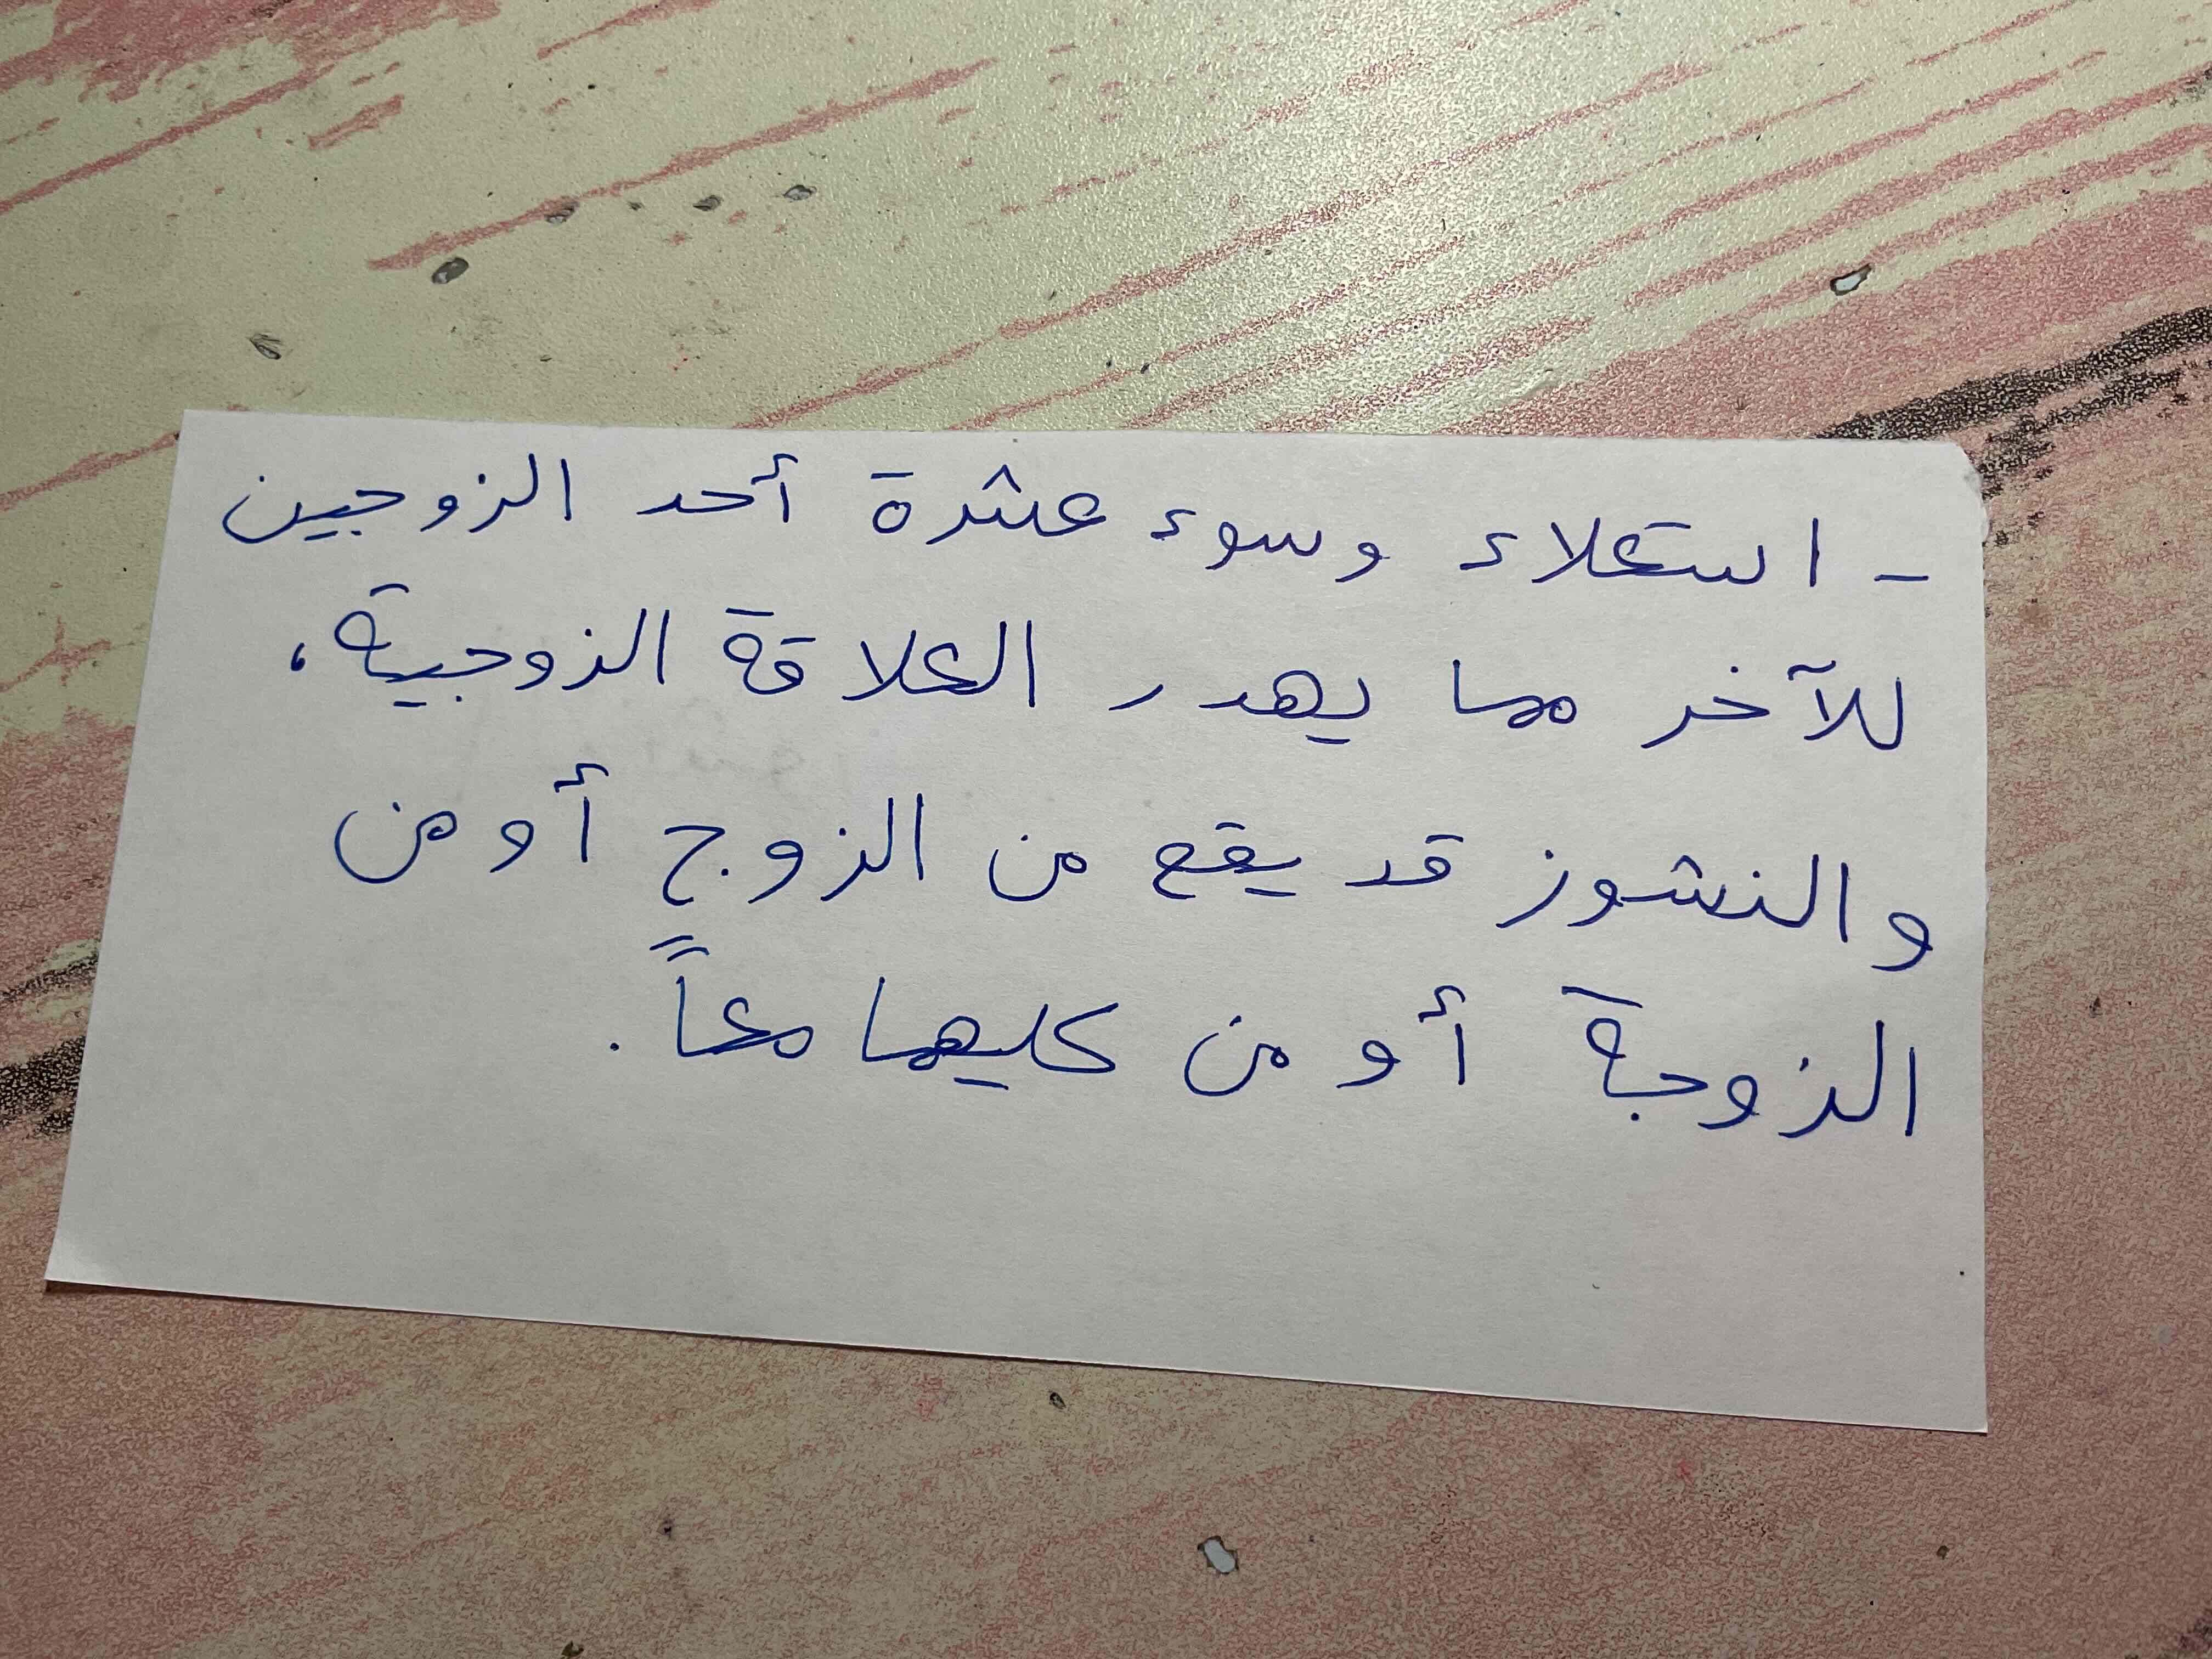 - استعلاء وسوء عشرة أحد الزوجين
للآخر مما يهدر العلاقة الزوجية،
والنشوز قد يقع من الزوج أو من
الزوجة أو من كليهما معاً.